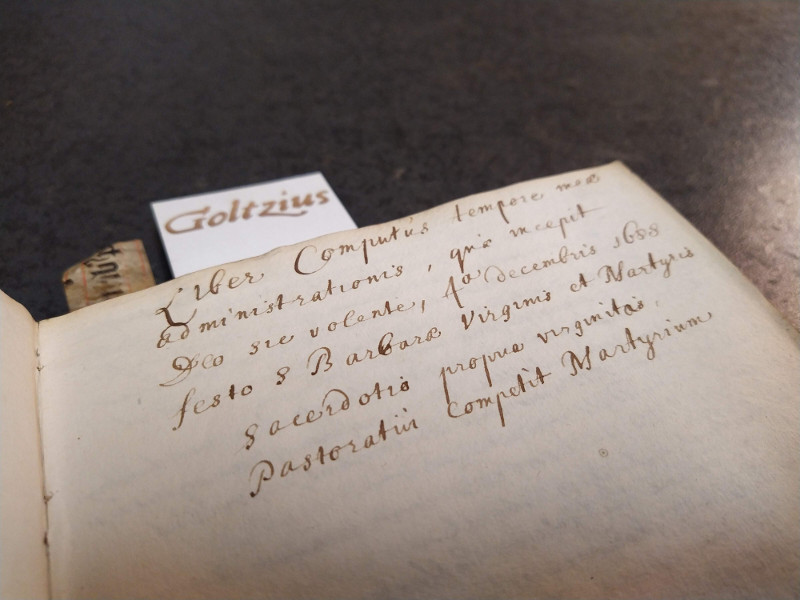 Goltzius
Liber Computus tempore meæ
administrationis, quæ incepit
Deo sic volente, 4a decembris 1688
festo S Barbaræ Virginis et Martyris
Sacerdotis propria virginitas,
Pastoratui competit Martyrium